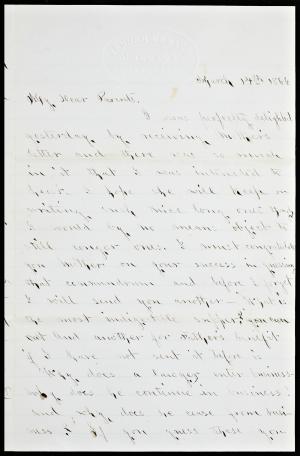 14th 1858
My Dear Parents
I was perfectly delighted
yesterday by receiving Mother's
letter and there was so much
in it that I was interested to
hear. I hope she will keep on
writing such nice long ones tho'
I would by no means object to
still longer ones. I must congratulate
you Mother on your success in guessing
that conundrum and before I forget
I will send you another — What is
the most indigestible supper you can
eat and another for Father's benefit
if I have not sent it before is
"Why does a lawyer enter business
why does he continue in business?
and why does he cease from busi-
ness"? If you guess these you